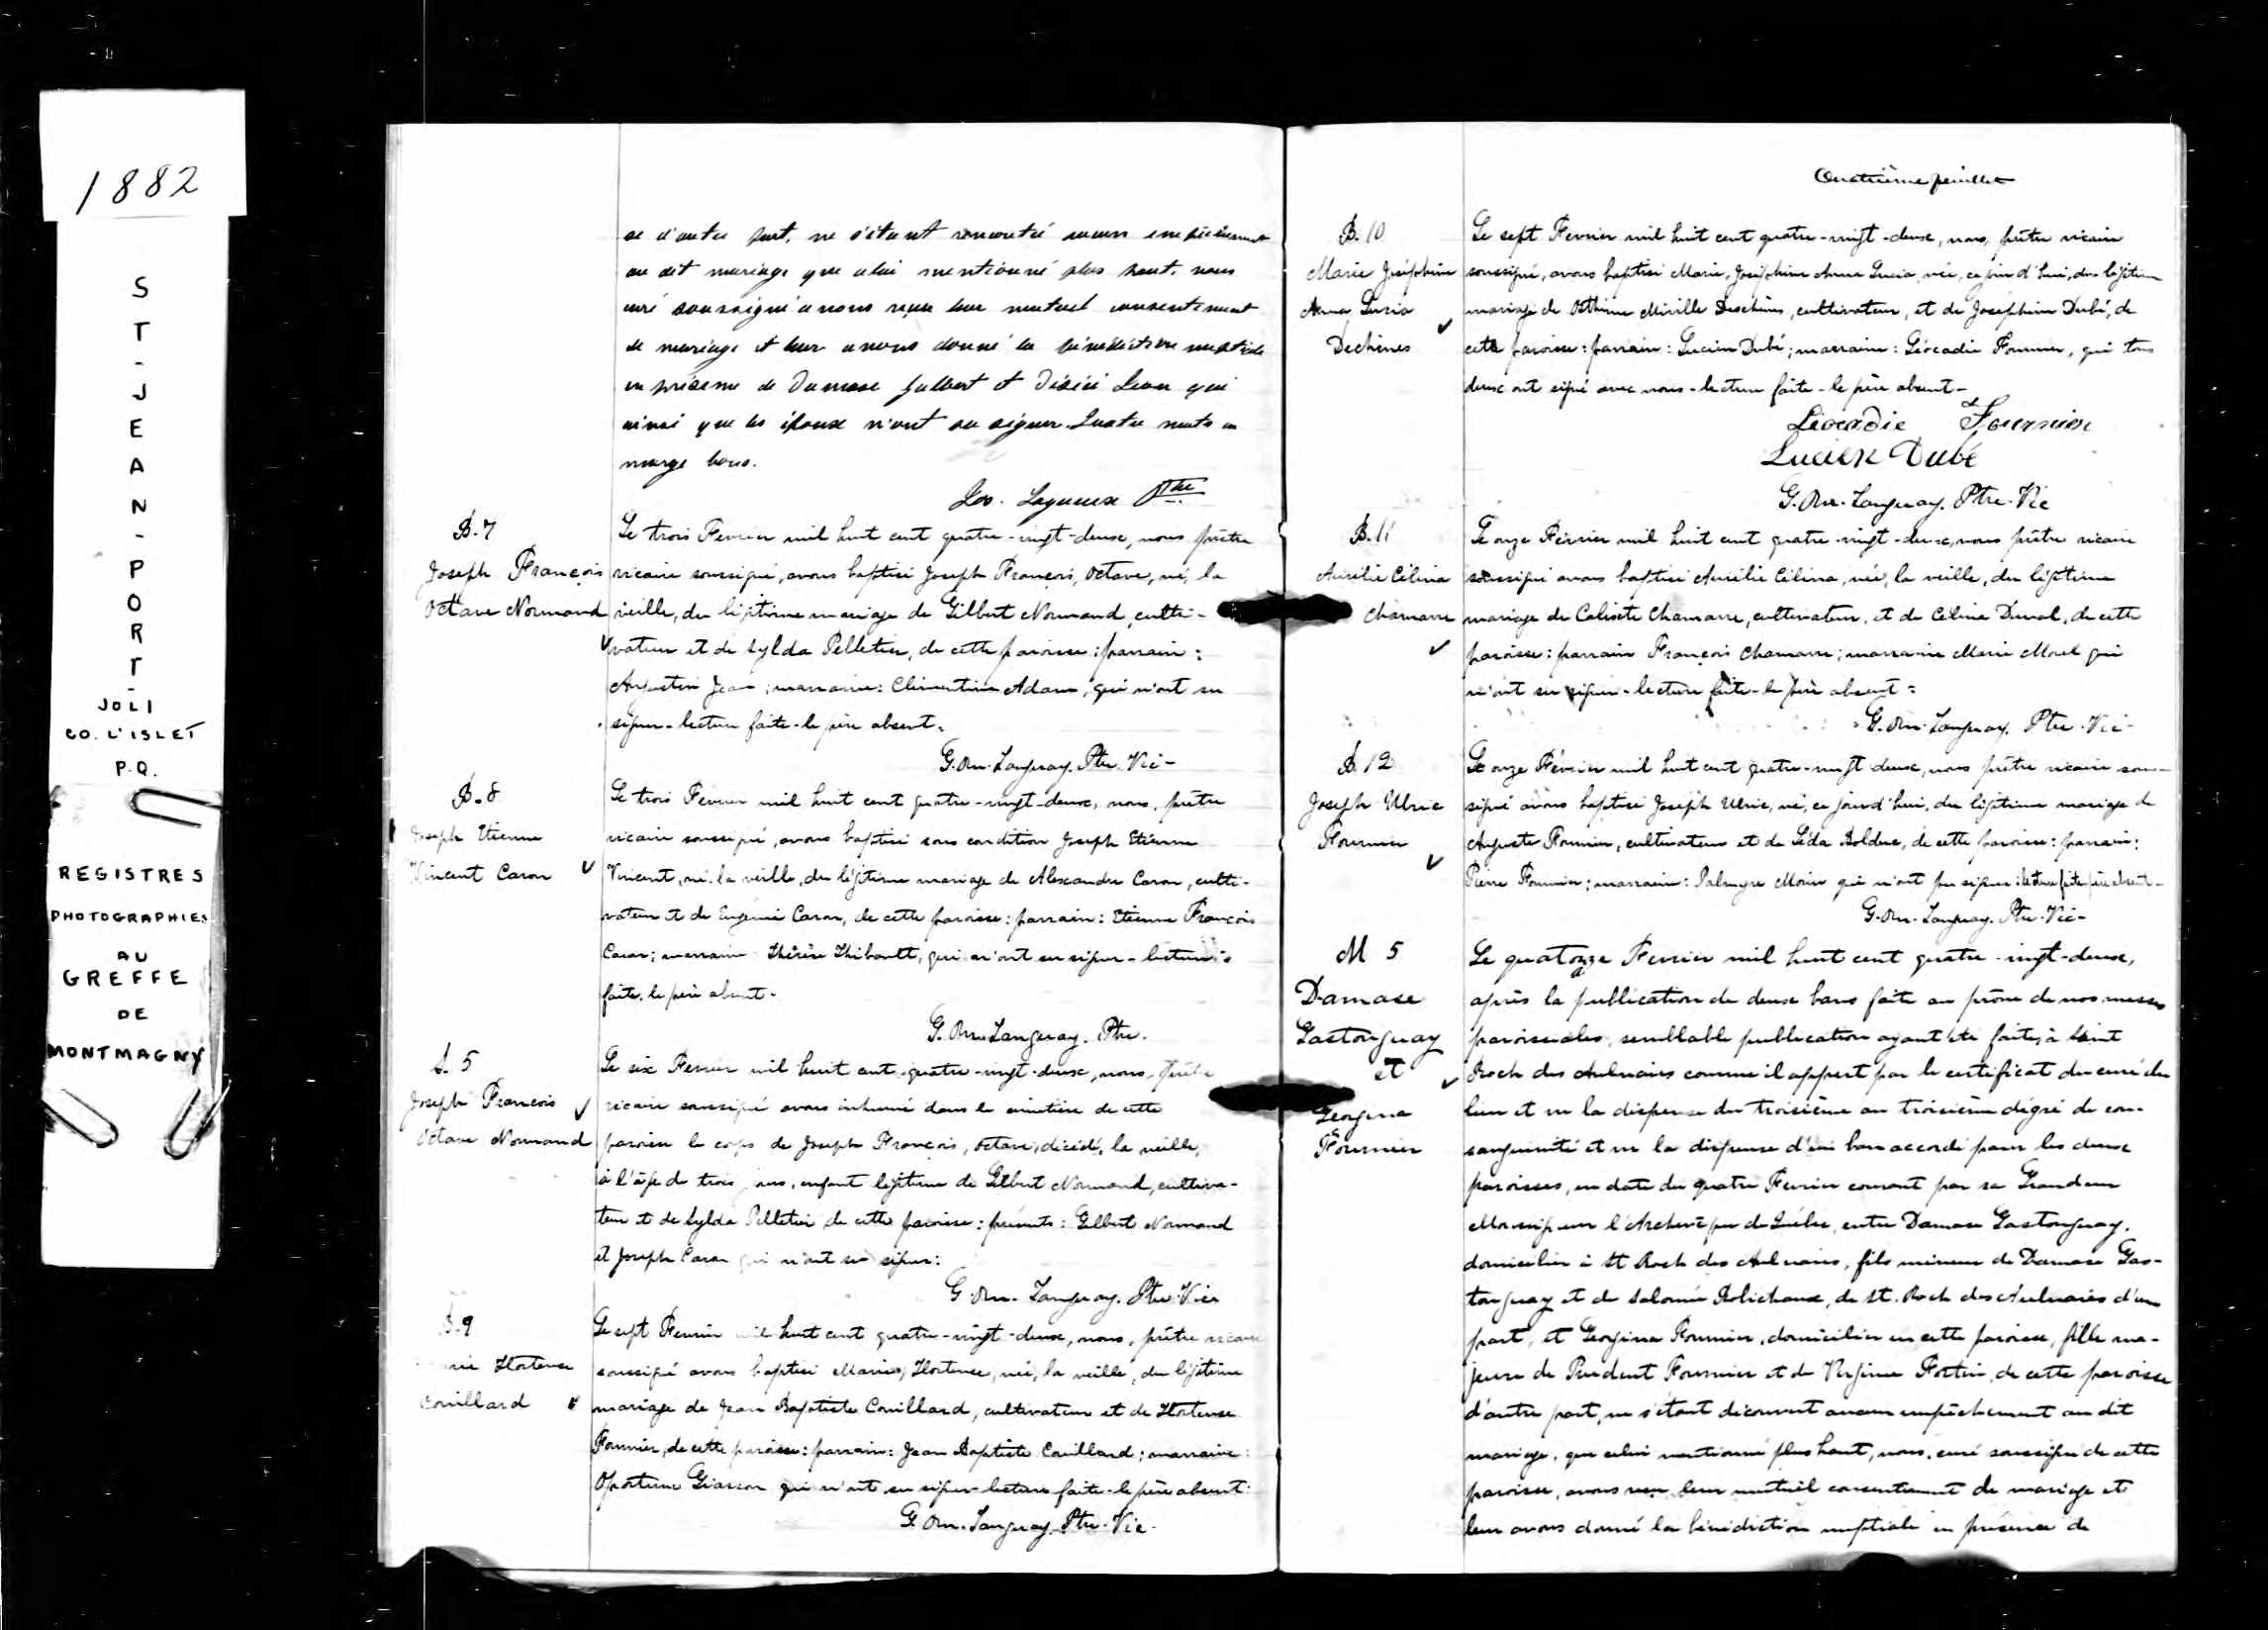 1882
ST-JEAN-PORT-
JOLI
CO. L'ISLET
P.Q.
REGISTRES
PHOTOGRAPHIES
AU
GREFFE
DE
MONTMAGNY
de d'autre part, ne s'étant rencontré aucun empêchement
au dit mariage que celui mentionné plus haut, nous
curé soussigné avons reçu leur mutuel consentement
de mariage et leur avons donné la bénédiction nuptiale
en présence de Damase Jalbert et Désiré qui
ainsi que les époux n'ont su signer. Quatre mots en
marge bons.
Jos. Lagueux Ptre
B. 7
Joseph François
Octave Normand
Le trois Fevrier mil huit cent quatre-vingt-deux, nous prêtre
vicaire soussigné, avons baptisé Joseph François, Octave, né, la
veille, du légitime mariage de Gilbert Normand, culti-
vateur et de Sylda Pelletier, de cette paroisse : parrain :
Augustin Jean ; marraine : Clémentine Adam, qui n'ont su
signer - lecture faite - le père absent.
G. Om. Languay. Ptre. Vic-
B. 8
Joseph Etienne
Vincent Caron
Le trois Fevrier mil huit cent quatre-vingt-deux, nous, prêtre
vicaire soussigné, avons baptisé sous condition Joseph Etienne
Vincent, né la veille, du légitime mariage de Alexandre Caron, culti-
vateur et de Eugénie Caron, de cette paroisse : parrain : Etienne François
Caron ; marraine Thérèse Thibault, qui n'ont su signer - lecture
faite. le père absent -
G. Om. Languay. Ptre.
S. 5
Joseph François
Octave Normand
Le six Fevrier mil huit cent quatre-vingt-deux, nous, prêtre
vicaire soussigné avons inhumé dans le cimetière de cette
paroisse le corps de Joseph François, Octave, décédé, la veille,
à l'âge de trois jours, enfant légitime de Gilbert Normand, cultiva-
teur et de Sylda Pelletier de cette paroisse : présents : Gilbert Normand
et Joseph Caron qui n'ont su signer :
G. Om. Languay. Ptre. Vic
B. 9
Marie Hortense
Couillard
Le sept Fevrier mil huit cent quatre-vingt-deux, nous, prêtre vicaire
soussigné avons baptisé Marie, Hortense, née, la veille, du légitime
mariage de Jean Baptiste Couillard, cultivateur et de Hortense
Fournier, de cette paroisse : parrain : Jean Baptiste Couillard ; marraine :
Oportune Giasson qui n'ont su signer - lecture faite - le père absent :
G. Om. Languay. Ptre. Vic-
Quatrième feuillet
B. 10
Marie Joséphine
Anna Lucia
Dechènes
Le sept Fevrier mil huit cent quatre-vingt-deux, nous, prêtre vicaire
soussigné, avons baptisé Marie, Joséphine Anna Lucia, née, ce jour d'hui, du légitime
mariage de Miville Deschènes, cultivateur, et de Joséphine Dubé, de
cette paroisse : parrain : Lucien Dubé ; marraine : Léocadie Fournier, qui tous
deux ont signé avec nous - lecture faite - le père absent -
Léocadie Fournier
Lucien Dubé
G. Om. Languay. Ptre. Vic
B. 11
Aurélie Célina
Chamarre
Le onze Février mil huit cent quatre-vingt-deux, nous prêtre vicaire
soussigné avons baptisé Aurélie Célina, née, la veille, du légitime
mariage de Calixte Chamarre, cultivateur, et de Célina Duval, de cette
paroisse : parrain François Chamarre ; marraine Marie Morel qui
n'ont su signer - lecture faite - le père absent :
G. Om. Languay. Ptre. Vic-
B. 12
Joseph Ulric
Fournier
Le onze Février mil huit cent quatre-vingt deux, nous prêtre vicaire sous-
signé avons baptisé Joseph Ulric, né, ce jourd'hui, du légitime mariage de
Auguste Fournier, cultivateur et de Léda Bolduc, de cette paroisse : parrain :
Pierre Fournier ; marraine : Palmyre Morin qui n'ont pu signer : lecture faite père absent -
G. Om. Languay. Ptre. Vic-
M 5
Damase
Gastonguay
et
Georgina
Fournier
Le quatorze Fevrier mil huit cent quatre-vingt-deux,
après la publication de deux bans faite au prône de nos messes
paroissiales, semblable publication ayant été faite, à Saint
Roch des Aulnaies comme il appert par le certificat du curé du
lieu et vu la dispense du troisième au troisième dégré de con-
sanguinité et vu la dispense d'un ban accordé pour les deux
paroisses, en date du quatre Fevrier courant par sa Grandeur
Monseigneur l'Archevêque de Québec, entre Damase Gastonguay,
domicilier à St Roch des Aulnaies, fils mineur de Damase Gas-
tonguay et de Salomée Robichaux, de St. Roch des Aulnaies d'une
part, et Georgina Fournier, domicilier en cette paroisse, fille ma-
jeure de Prudent Fournier et de Virginie Fortin, de cette paroisse
d'autre part, ne s'étant découvert aucun empêchement au dit
mariage, que celui mentionné plus haut, nous, curé soussigné de cette
paroisse, avons reçu leur mutuel consentement de mariage et
leur avons donné la bénédiction nuptiale en présence de